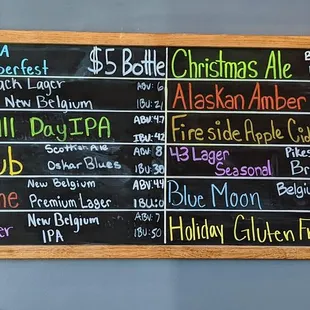 A
berfest
$5 Bottle
ack Lager
ABV: 6
New Belgium
IBU: 21
All Day IPA
ABV: 4.7
IBU: 42
ub
Scottish Ale
ABV: 8
Oskar Blues
IBU: 38
ne
New Belgium
Premium Lager
IBU: 0
er
New Belgium
ABV: 7
IPA
IBU: 50
Christmas Ale
Alaskan Amber
Fireside Apple Cid
43 Lager
Seasonal
Pikes
Br
Blue Moon
Belgi
Holiday Gluten Fr